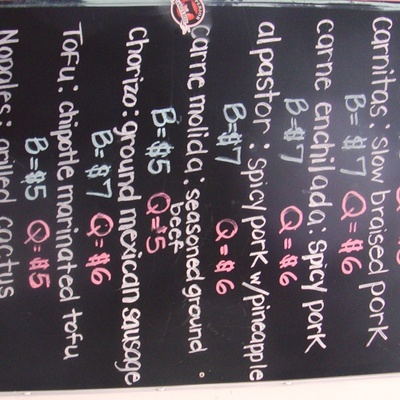 Carnitas: slow braised pork
B=$7 Q=$6
carne enchilada: spicy pork
B=$7 Q=$6
al pastor: spicy pork w/pineapple
B=$7 Q=$6
Carne molida: seasoned ground
beef
B=$5 Q=$5
Chorizo: ground mexican sausage
B=$7 Q=$6
Tofu: chipotle marinated tofu
B=$5 Q=$5
Nopales: grilled cactus